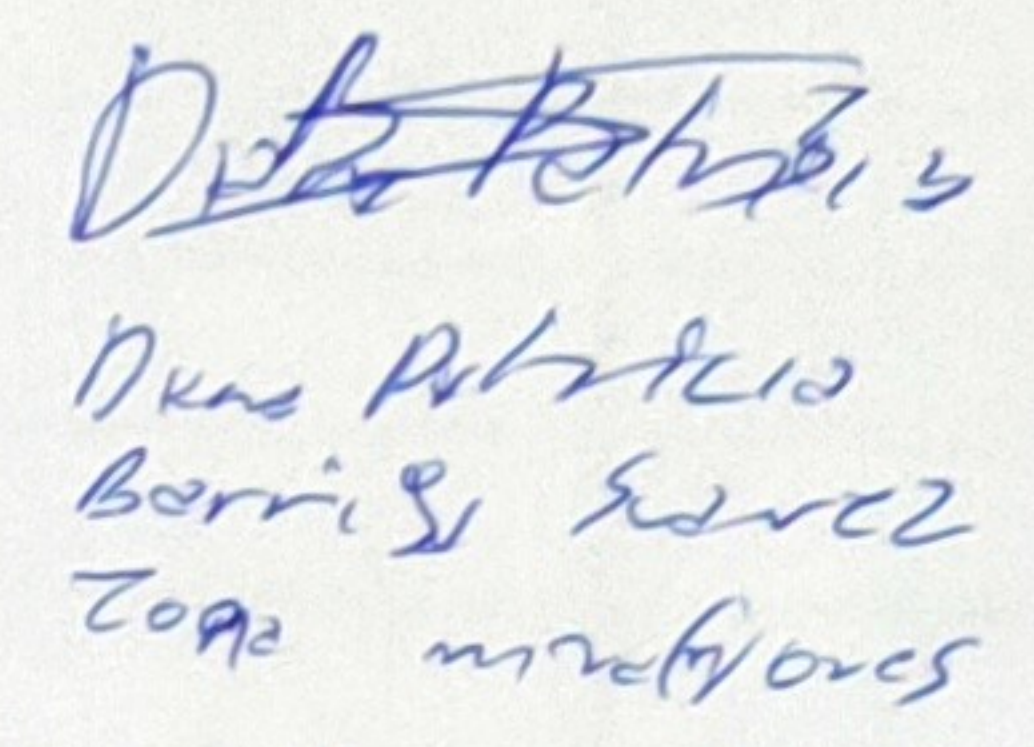 Diana Patricia
Barriga Suarez
Zona miraflores